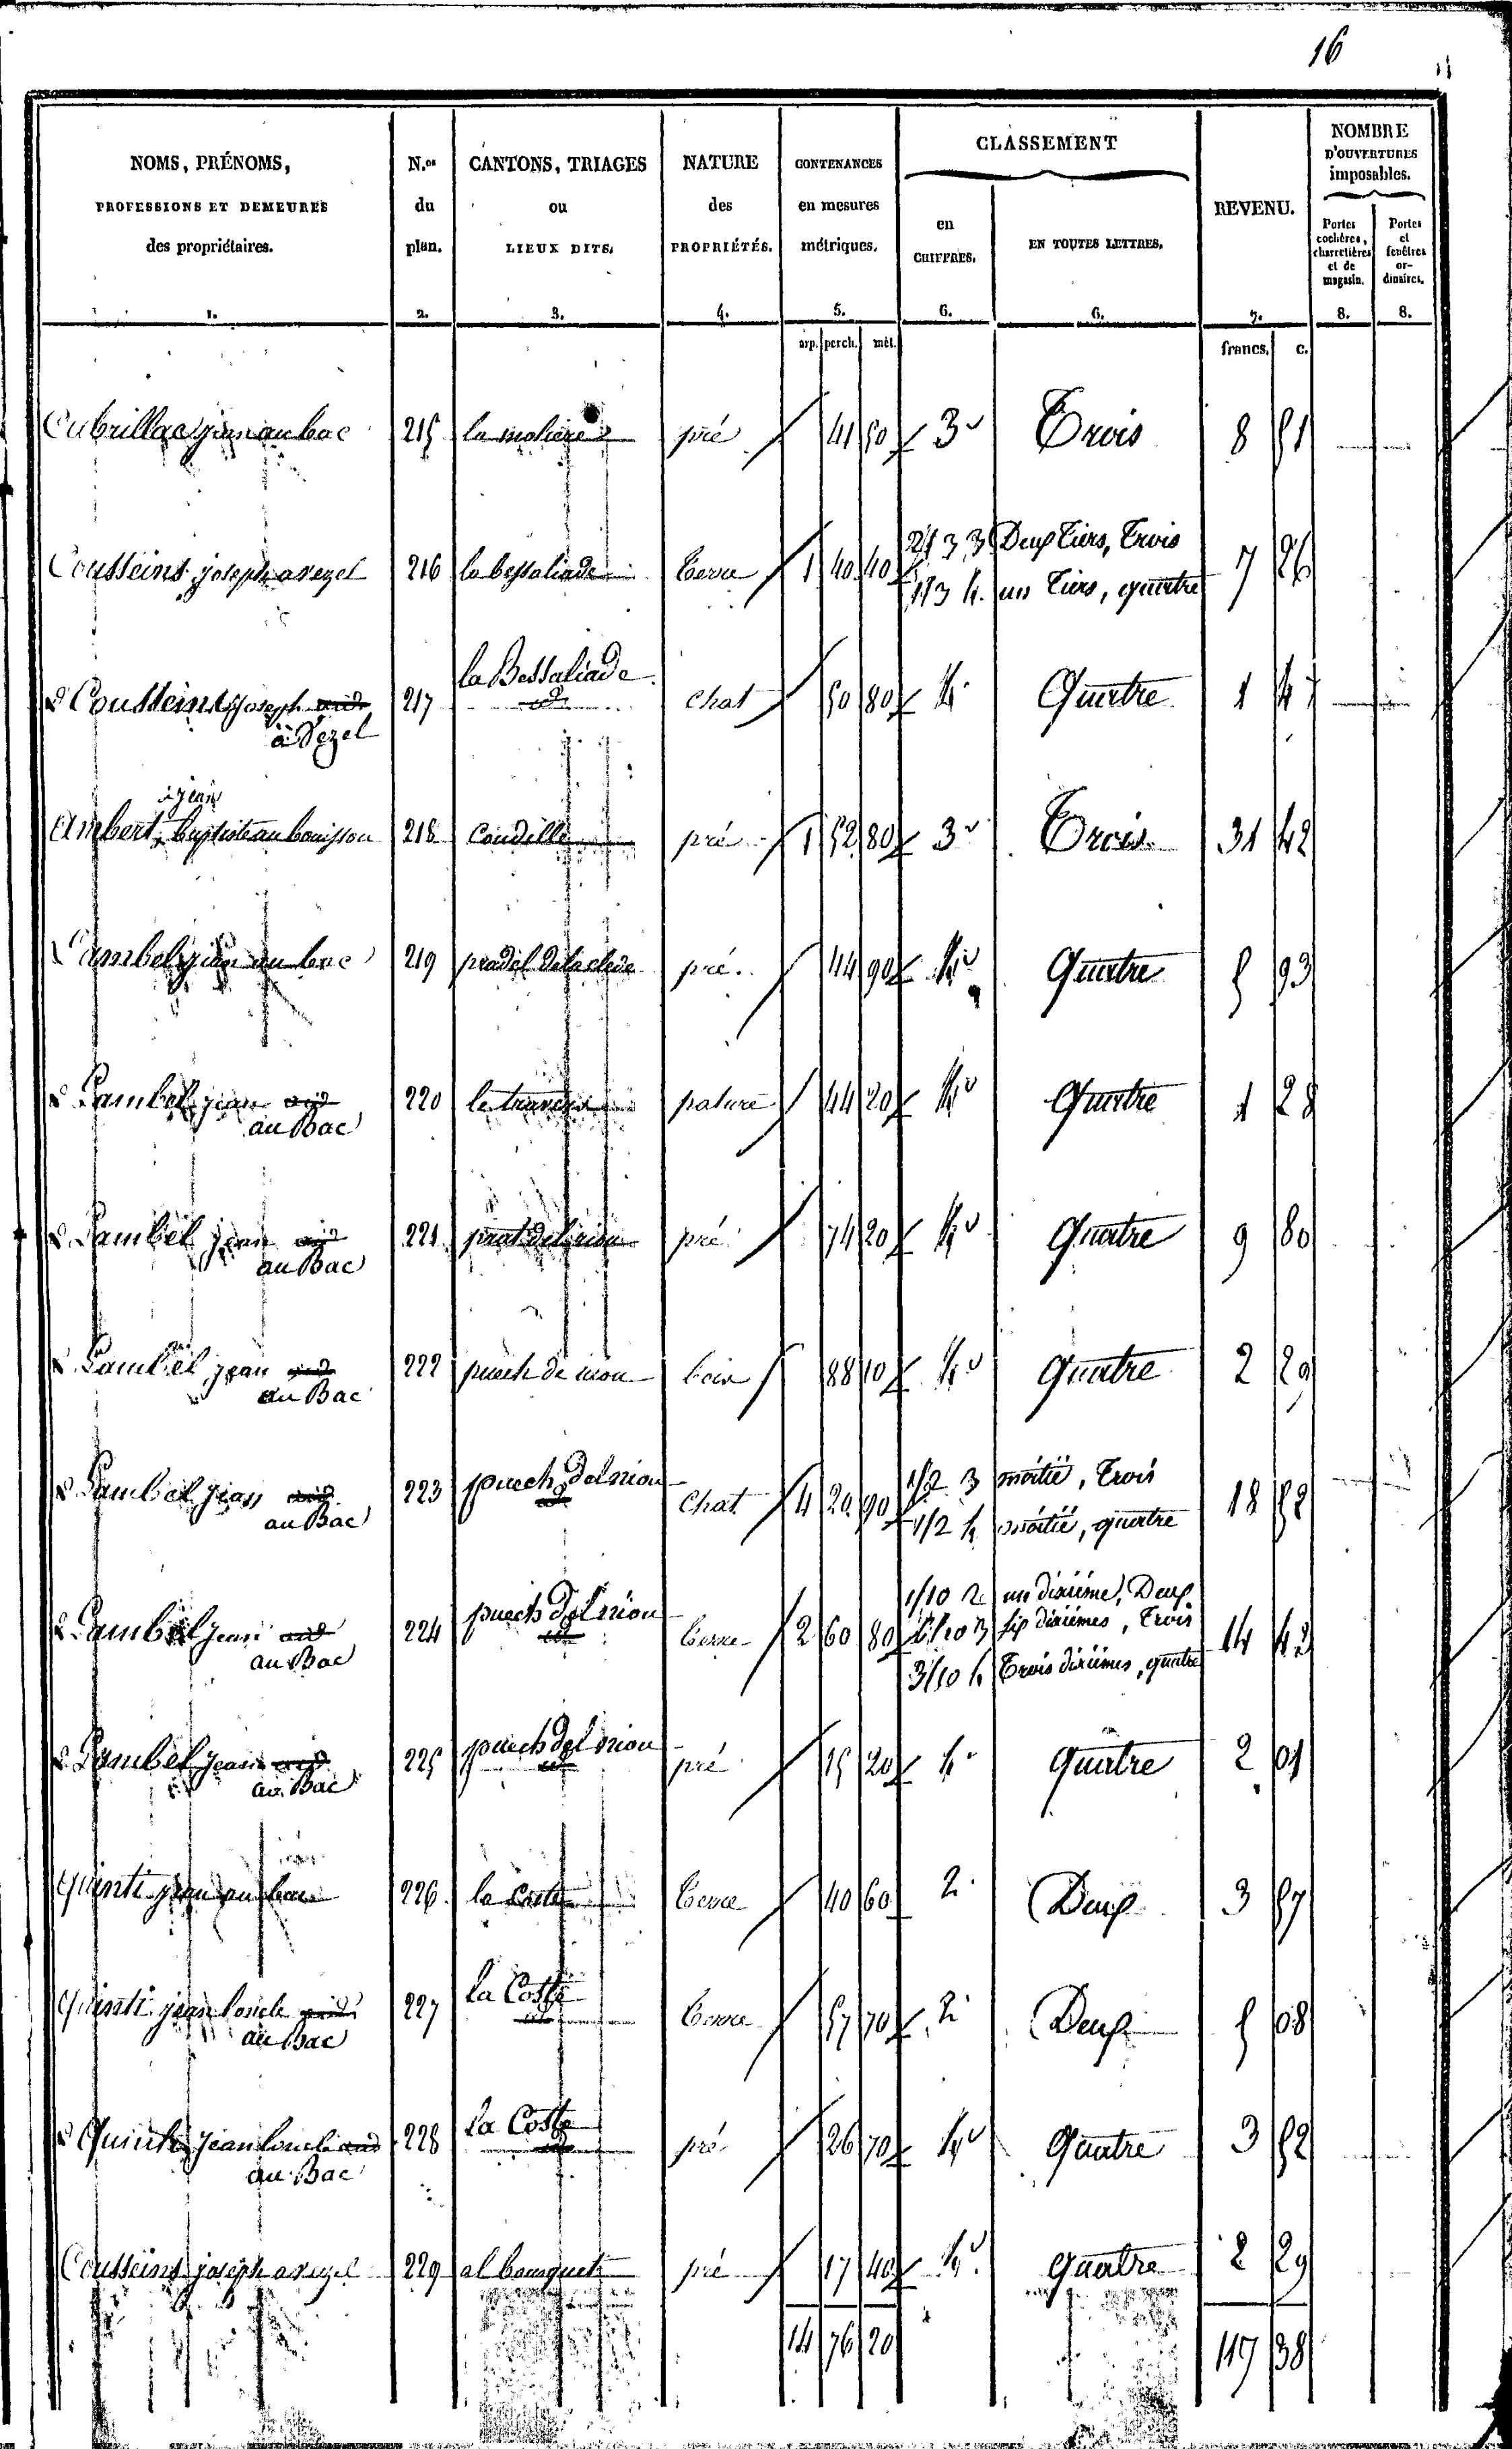 16
NOMS, PRÉNOMS, PROFESSIONS ET DEMEURES des propriétaires. 1.
N.os du plan. 2.
CANTONS, TRIAGES ou LIEUX DITS. 3.
NATURE des PROPRIÉTÉS. 4.
CONTENANCES en mesures métriques. 5.
CLASSEMENT
en CHIFFRES. 6.
EN TOUTES LETTRES. 6.
REVENU. 7.
NOMBRE D'OUVERTURES imposables.
Portes cochères, charretières et de magasin. 8.
Portes et fenêtres ordinaires. 8.
arp. perch. mèt. francs. c.
Cubrillac jean au bac 215 la moliere pré 41 50 3 Trois 8 51
Cousseins joseph a vezel 216 la bessaliade terre 1 40 40 2/3 3 Deux Tiers, Trois 7 26
1/3 4 un Tiers, quatre
Cousseins joseph 217 la Bessaliade chat 50 80 4 Quatre 1 47
à Vezel
jean
Ambert baptiste au bouisson 218 Coudille pré 1 52 80 3 Trois 31 42
Lambel jean au bac 219 pradel de la clede pré 44 90 4 Quatre 5 93
Lambel jean 220 le travers pature 44 20 4 Quatre 1 28
au Bac
Lambel jean 221 prat del riou pré 74 20 4 Quatre 9 80
au Bac
Lambel jean 222 puech de niou bois 88 10 4 Quatre 2 29
au Bac
Lambel jean 223 puech del niou chat 4 20 90 1/2 3 moitié, Trois 18 52
au Bac 1/2 4 moitié, quatre
Lambel jean 224 puech del niou terre 2 60 80 1/10 2 un dixième, Deux 14 42
au Bac 6/10 3 six dixièmes, Trois
3/10 4 Trois dixièmes, quatre
Lambel jean 225 puech del niou pré 15 20 4 Quatre 2 01
au Bac
Quinti jean au bac 226 la Coste terre 40 60 2 Deux 3 57
Quinti jean l'oncle 227 la Coste terre 57 70 2 Deux 5 08
au Bac
Quinti jean l'oncle 228 la Coste pré 26 70 4 Quatre 3 52
au Bac
Cousseins joseph a vezel 229 al bousquet pré 17 40 4 Quatre 2 29
14 76 20 117 38